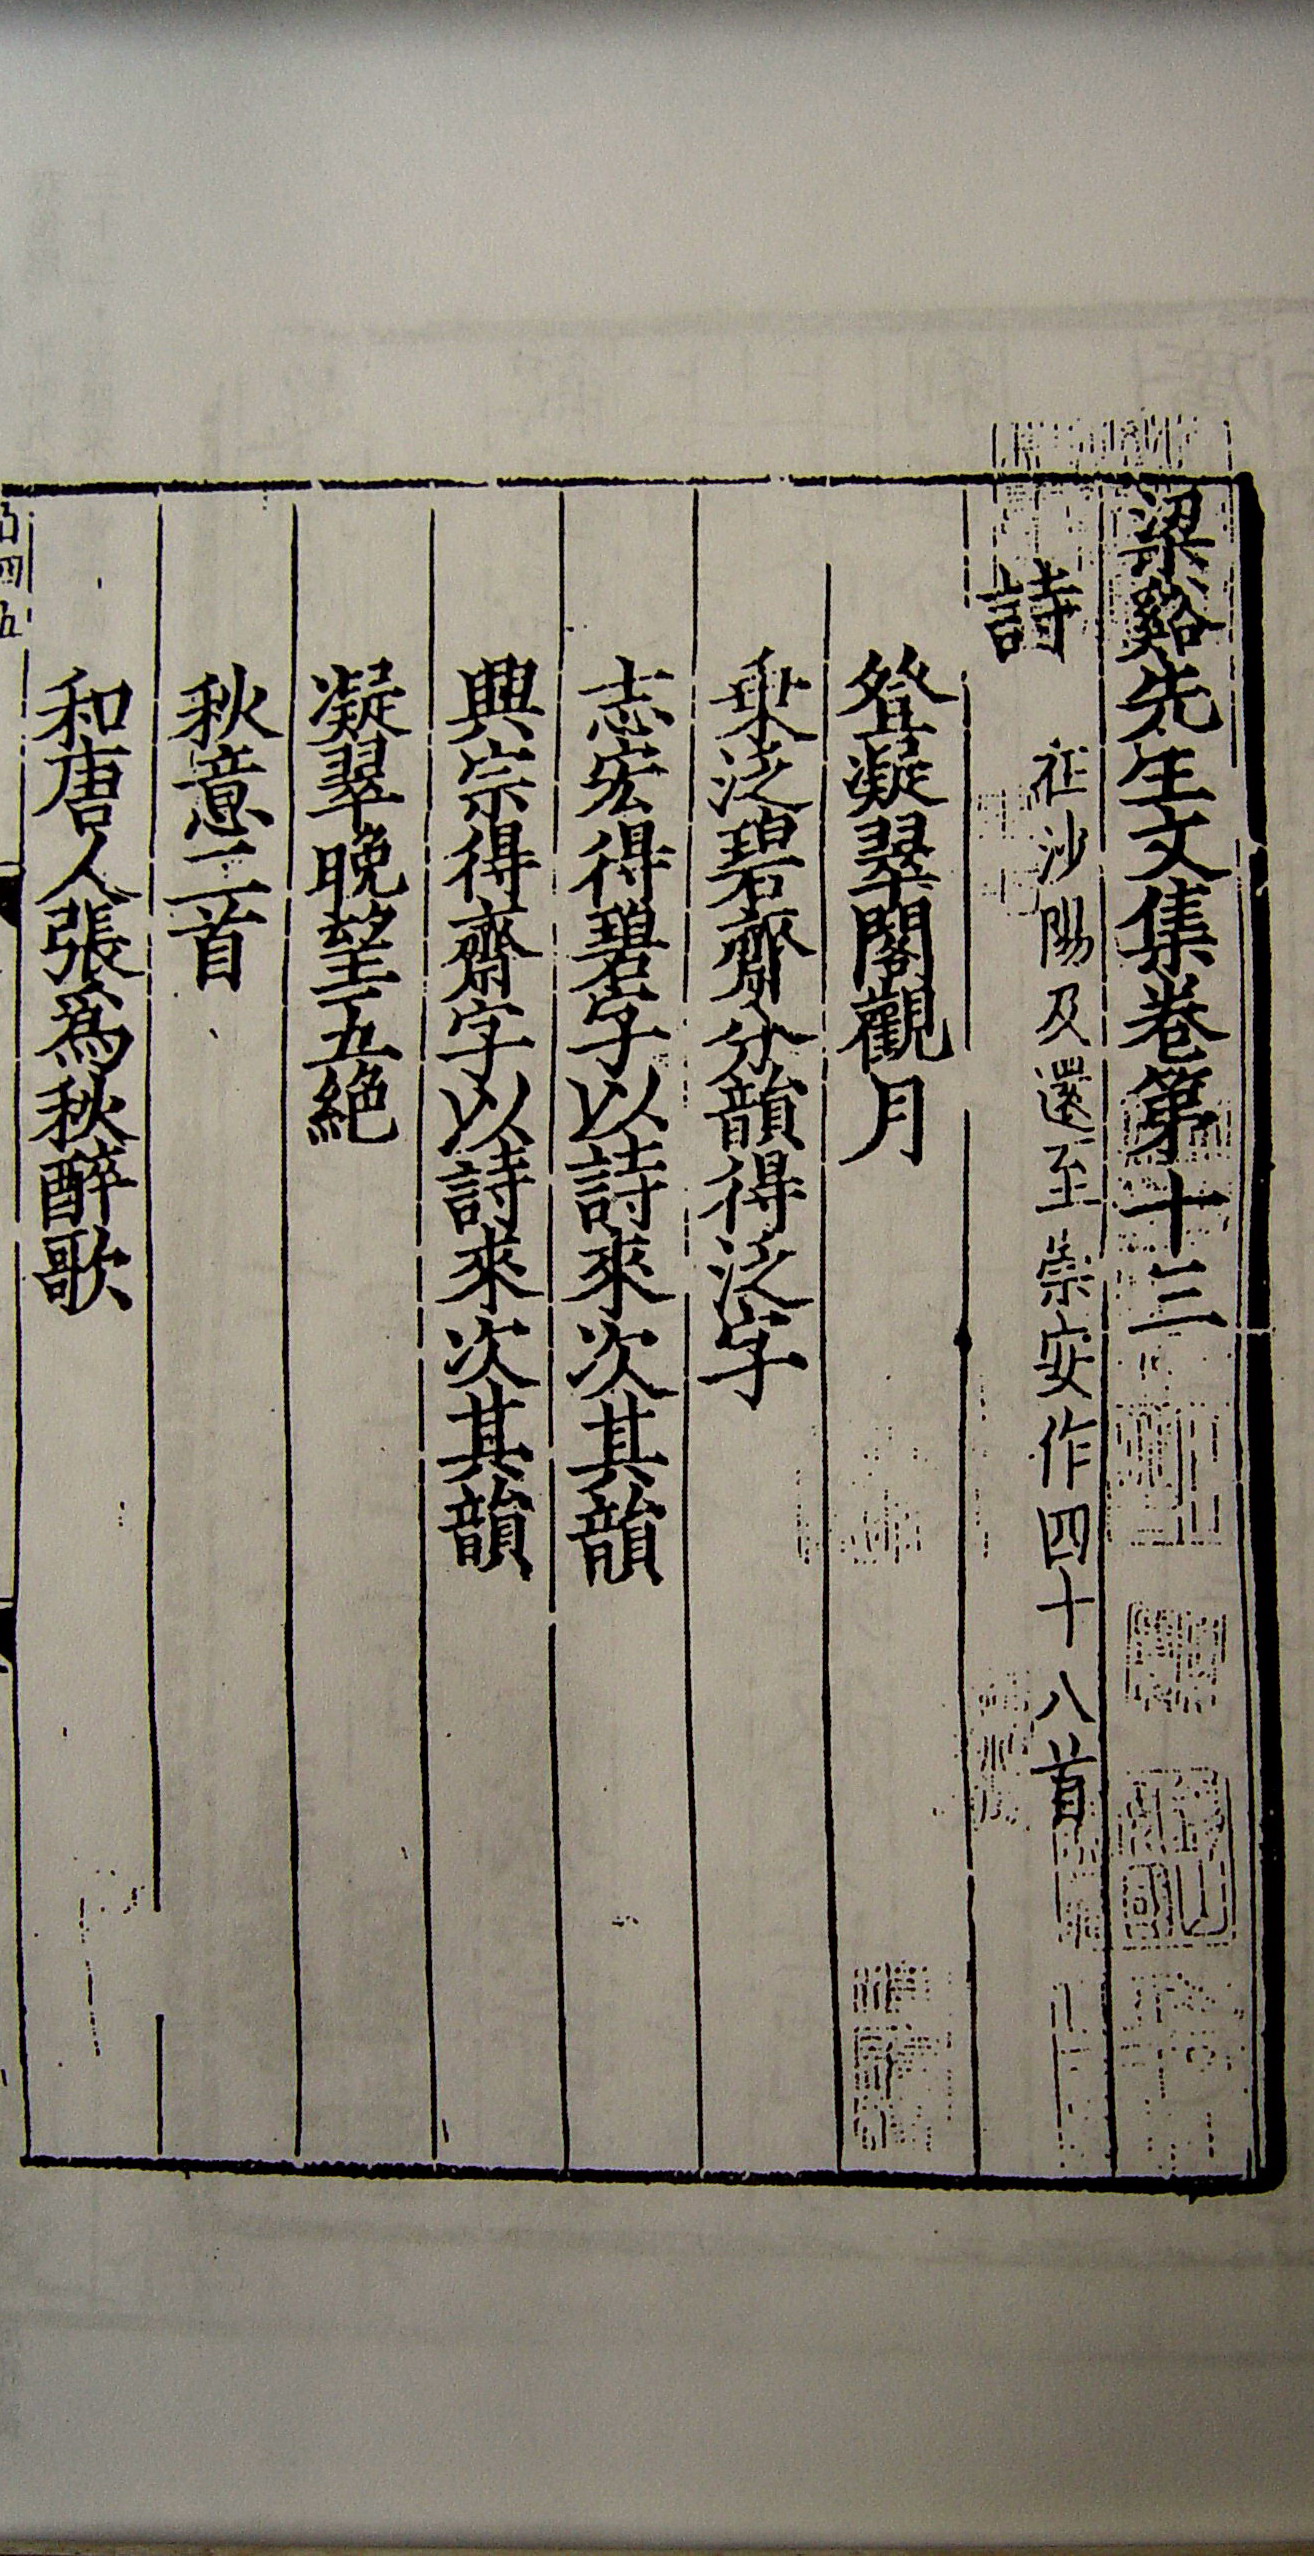 梁谿先生文集卷第十三
詩
在沙陽及還至崇安作四十八首
登凝翠閣觀月
泛碧齋分韻得泛字
志宏得碧字以詩來次其韻
興宗得齋字以詩來次其韻
凝翠晚望五絕
秋意二首
和唐人張爲秋醉歌